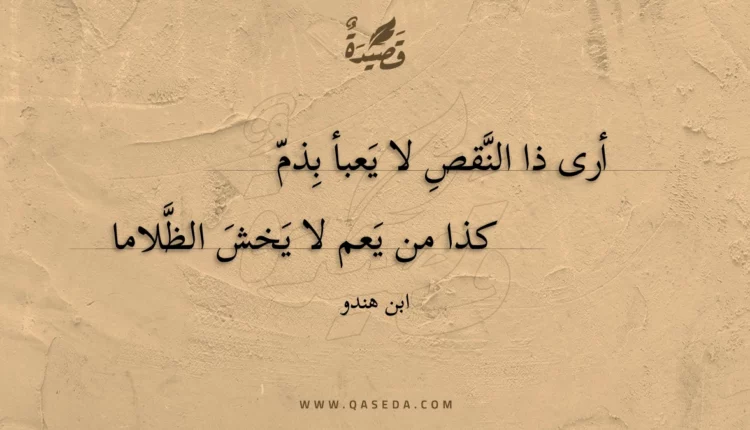 قَصِيدَةٌ
أرى ذا النَّقصِ لا يَعبأ بِذمّ
كذا من يَعم لا يَخشَ الظَّلاما
ابن هندو
WWW.QASEDA.COM